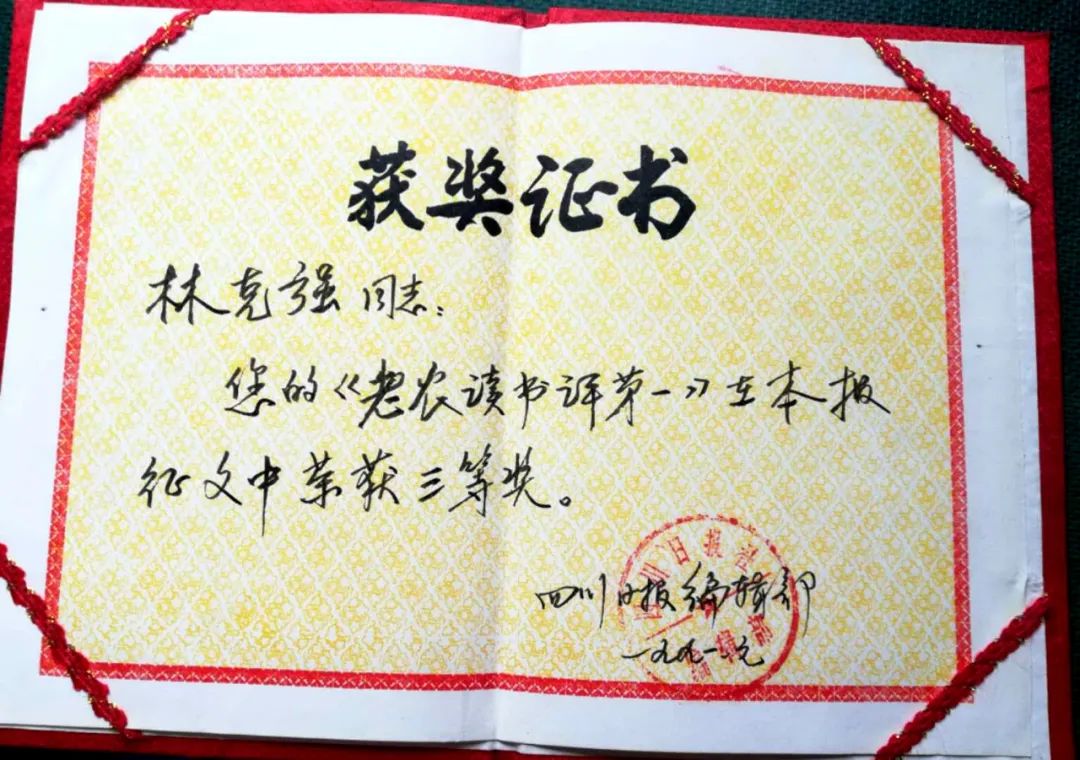 获奖证书
林克强同志：
您的《老农读书评第一》在本报
征文中荣获三等奖。
四川日报社
编辑部
四川日报编辑部
一九九一、元